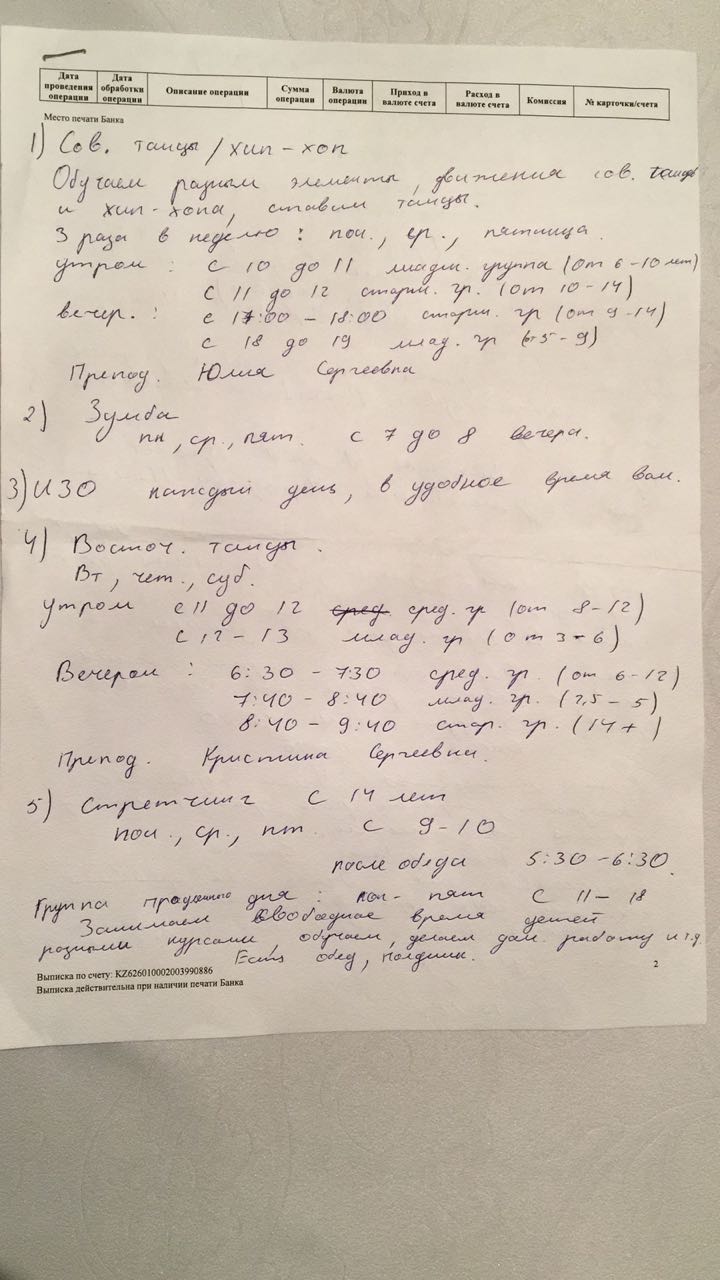 Дата проведения операции Дата обработки операции Описание операции Сумма операции Валюта операции Приход в валюте счета Расход в валюте счета Комиссия № карточки/счета
Место печати Банка
1) Сов. танцы / хип-хоп
Обучаем разным элементы, движения сов. танцы
и хип-хопа, ставим танцы.
3 раза в неделю : пон., ср., пятница.
утром : с 10 до 11 младш. группа (от 6-10 лет)
с 11 до 12 старш. гр. (от 10-14)
вечер. : с 17:00 – 18:00 старш. гр (от 9-14)
с 18 до 19 млад. гр (от 5-9)
Препод. Юлия Сергеевна
2) Зумба
пн, ср., пят. с 7 до 8 вечера.
3) ИЗО каждый день, в удобное время вам.
4) Восточ. танцы.
Вт, чет., суб.
утром с 11 до 12 сред. сред. гр (от 8-12)
с 12-13 млад. гр (от 3-6)
Вечером : 6:30 - 7:30 сред. гр. (от 6-12)
7:40 - 8:40 млад. гр. (2,5 - 5)
8:40 - 9:40 стар. гр. (14+)
Препод. Кристина Сергеевна.
5) Стретчинг с 14 лет
пон., ср., пт. с 9-10
после обеда 5:30 - 6:30.
Группа продленного дня : пон- пят с 11 – 18
Занимаем свободное время детей
разными курсами, обучаем, делаем дом. работу и т.д.
Есть обед, полдник.
Выписка по счету: KZ626010002003990886
Выписка действительна при наличии печати Банка
2